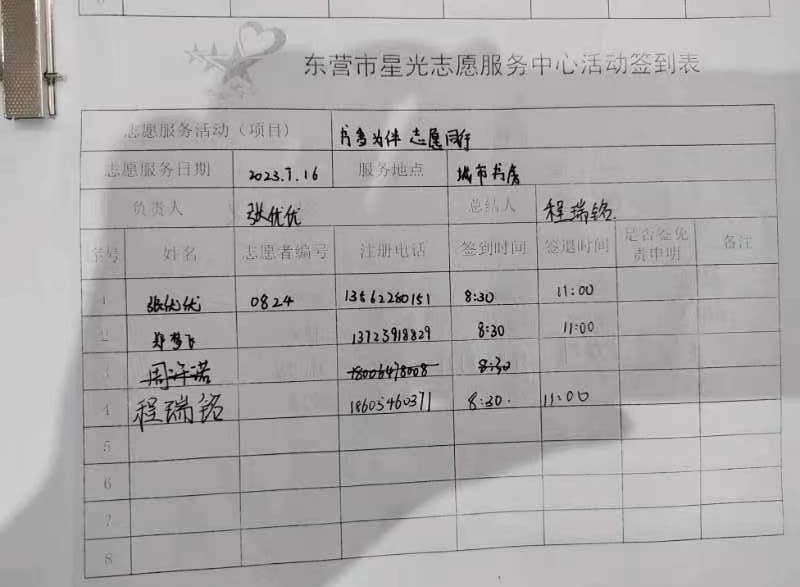 东营市星光志愿服务中心活动签到表
志愿服务活动（项目） 书香为伴 志愿同行
志愿服务日期 2023.7.16 服务地点 城市书房
负责人 张优优 总结人 程瑞铭
序号 姓名 志愿者编号 注册电话 签到时间 签退时间 是否签免责申明 备注
1 张优优 0824 13562280151 8:30 11:00
2 郑梦飞 13723918829 8:30 11:00
3 周许诺 18006478008 8:30
4 程瑞铭 18605460371 8:30. 11:00
5
6
7
8